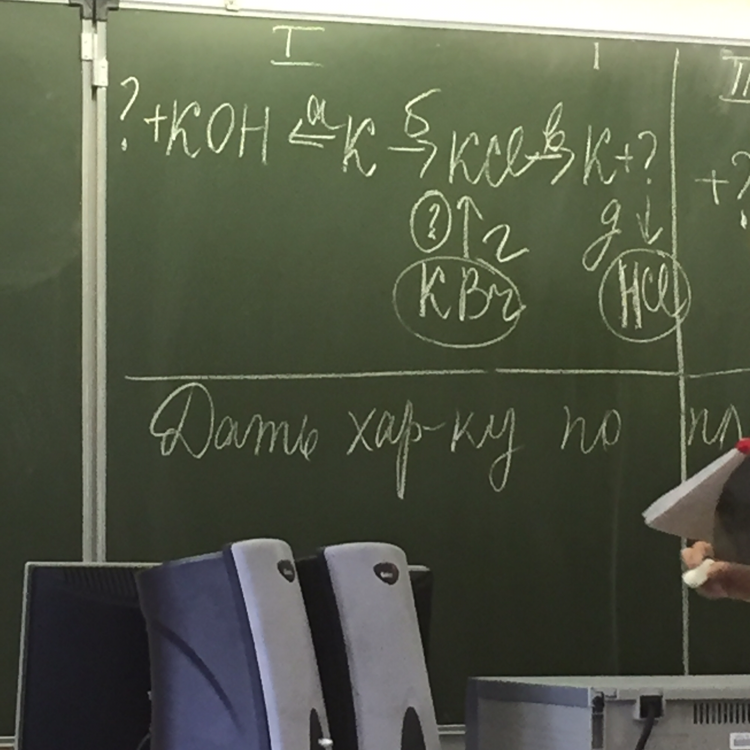 I I II
? + KOH ⇐ а K → б KCl → в K + ? + ?
? ↑ г д ↓
KBr HCl
Дать хар-ку по пл